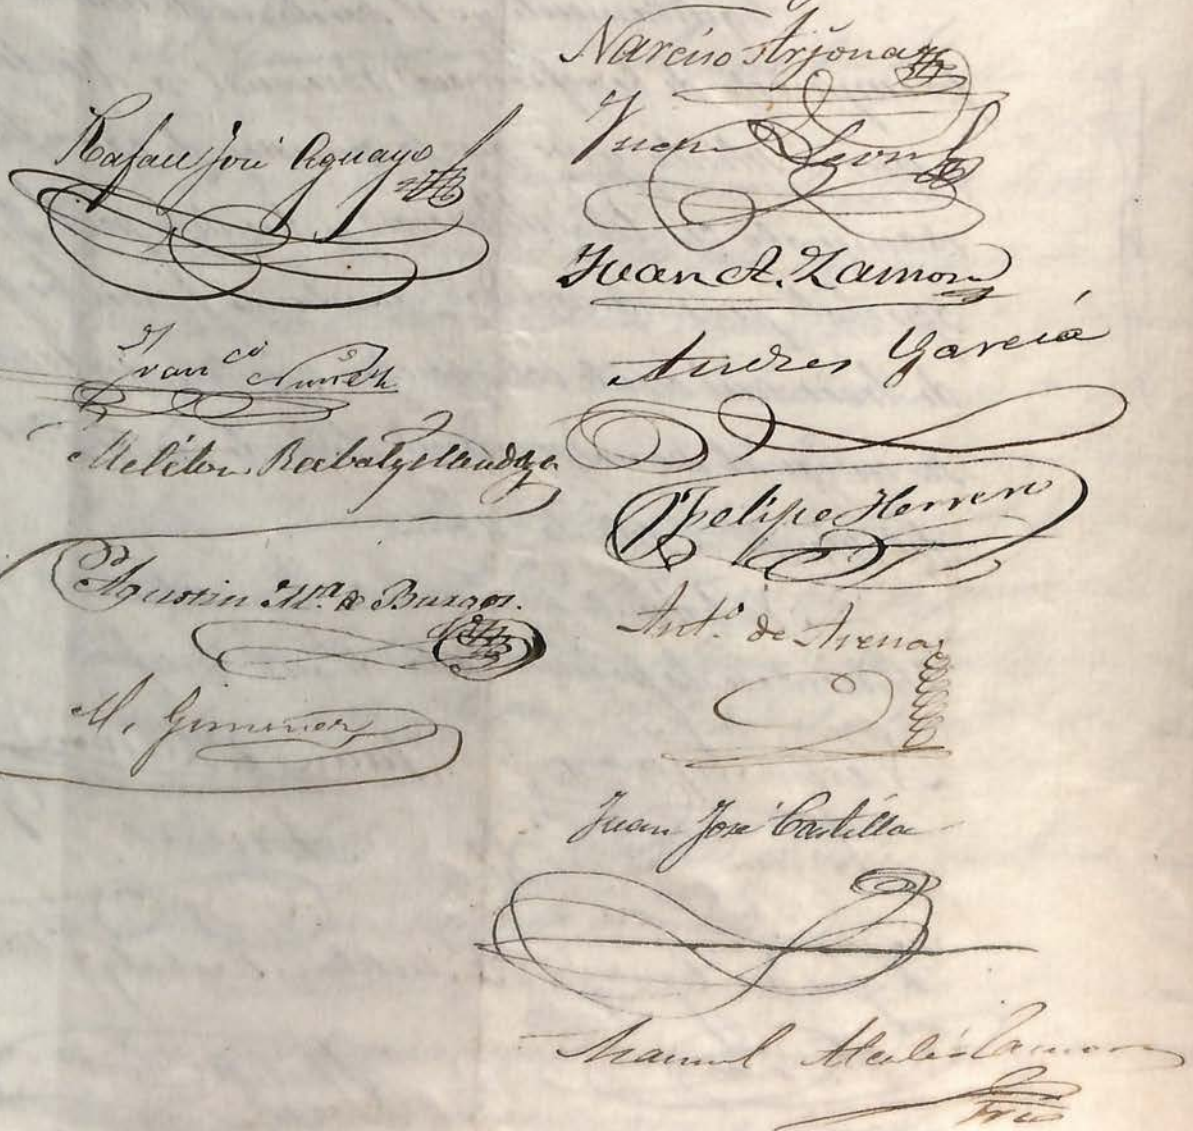 Rafael José Aguayo
Franco Nuñez
Meliton
Agustin Ma. de Burgos.
M. Gimenez
Narciso Arjona
Juan Leon
Juan A. Zamora
Andres García
Felipe Herrero
Anto. de Arenas
Juan José Castilla
Manuel Alcalá Zamora
Srio